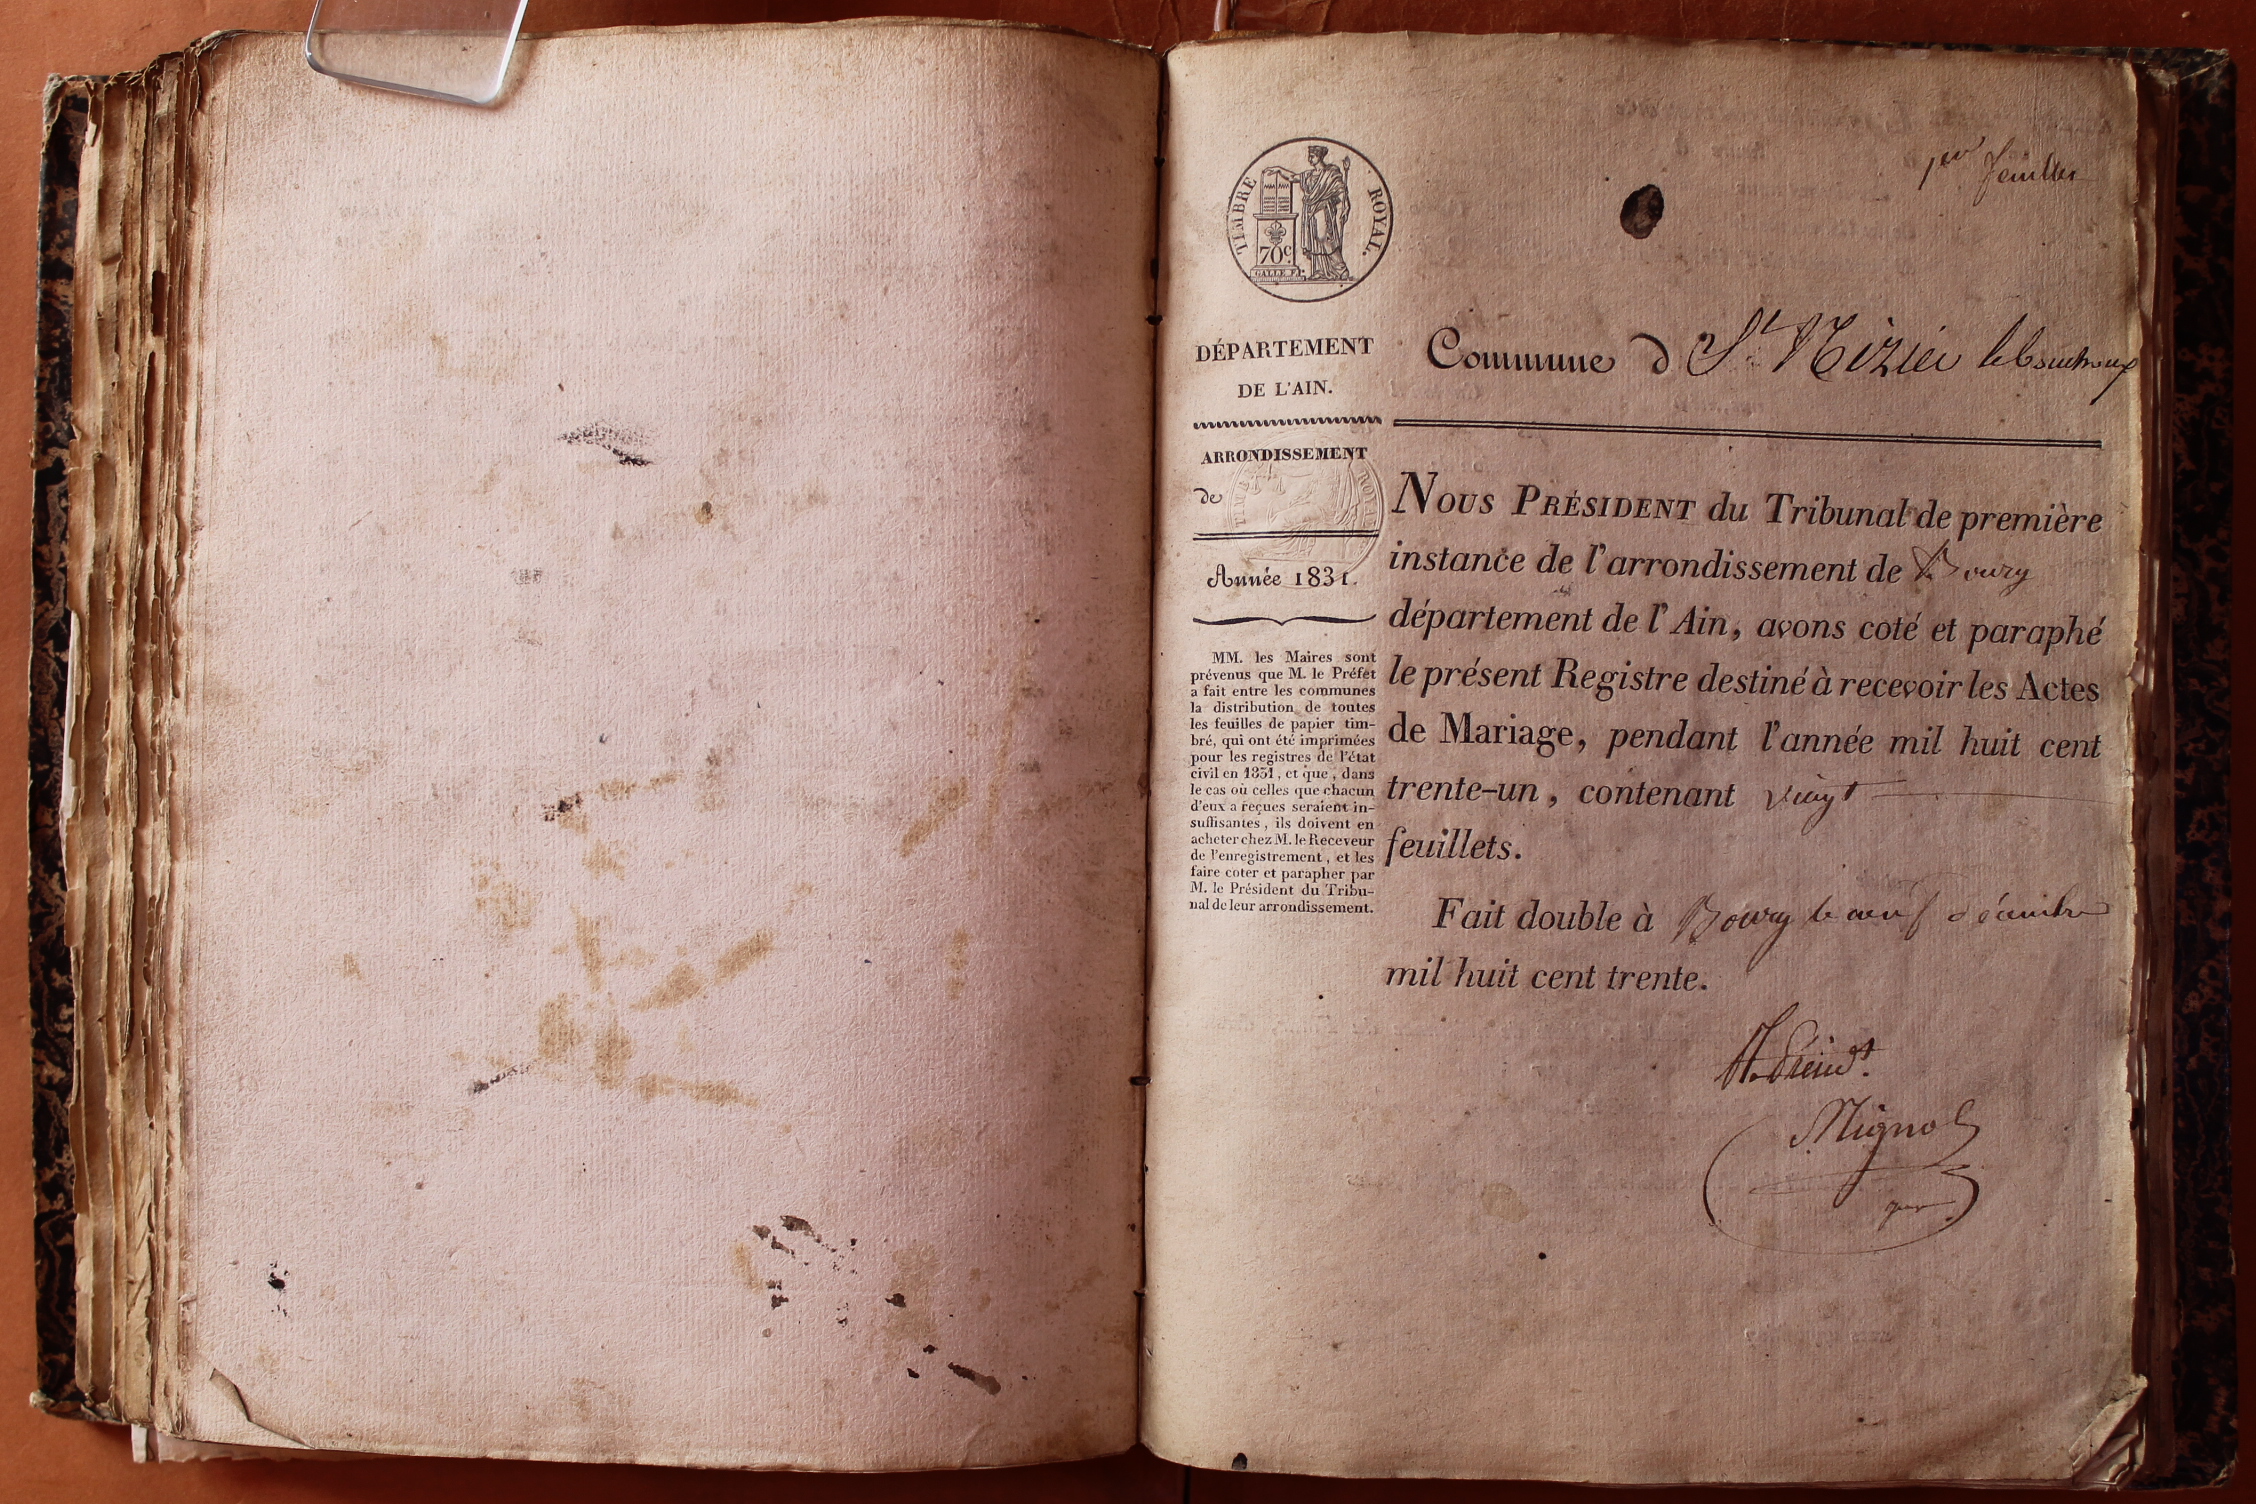 1er feuillet
TIMBRE ROYAL.
70c.
GALLE F.
DÉPARTEMENT
DE L'AIN.
Commune d St Nizier le bouchoux
ARRONDISSEMENT
de
Année 1831.
MM. les Maires sont
prévenus que M. le Préfet
a fait entre les communes
la distribution de toutes
les feuilles de papier tim-
bré, qui ont été imprimées
pour les registres de l'état
civil en 1831, et que, dans
le cas où celles que chacun
d'eux a reçues seraient in-
suffisantes, ils doivent en
acheter chez M. le Receveur
de l'enregistrement, et les
faire coter et parapher par
M. le Président du Tribu-
nal de leur arrondissement.
NOUS PRÉSIDENT du Tribunal de première
instance de l'arrondissement de Bourg
département de l'Ain, avons coté et paraphé
le présent Registre destiné à recevoir les Actes
de Mariage, pendant l'année mil huit cent
trente-un, contenant vingt
feuillets.
Fait double à Bourg le neuf décembre
mil huit cent trente.